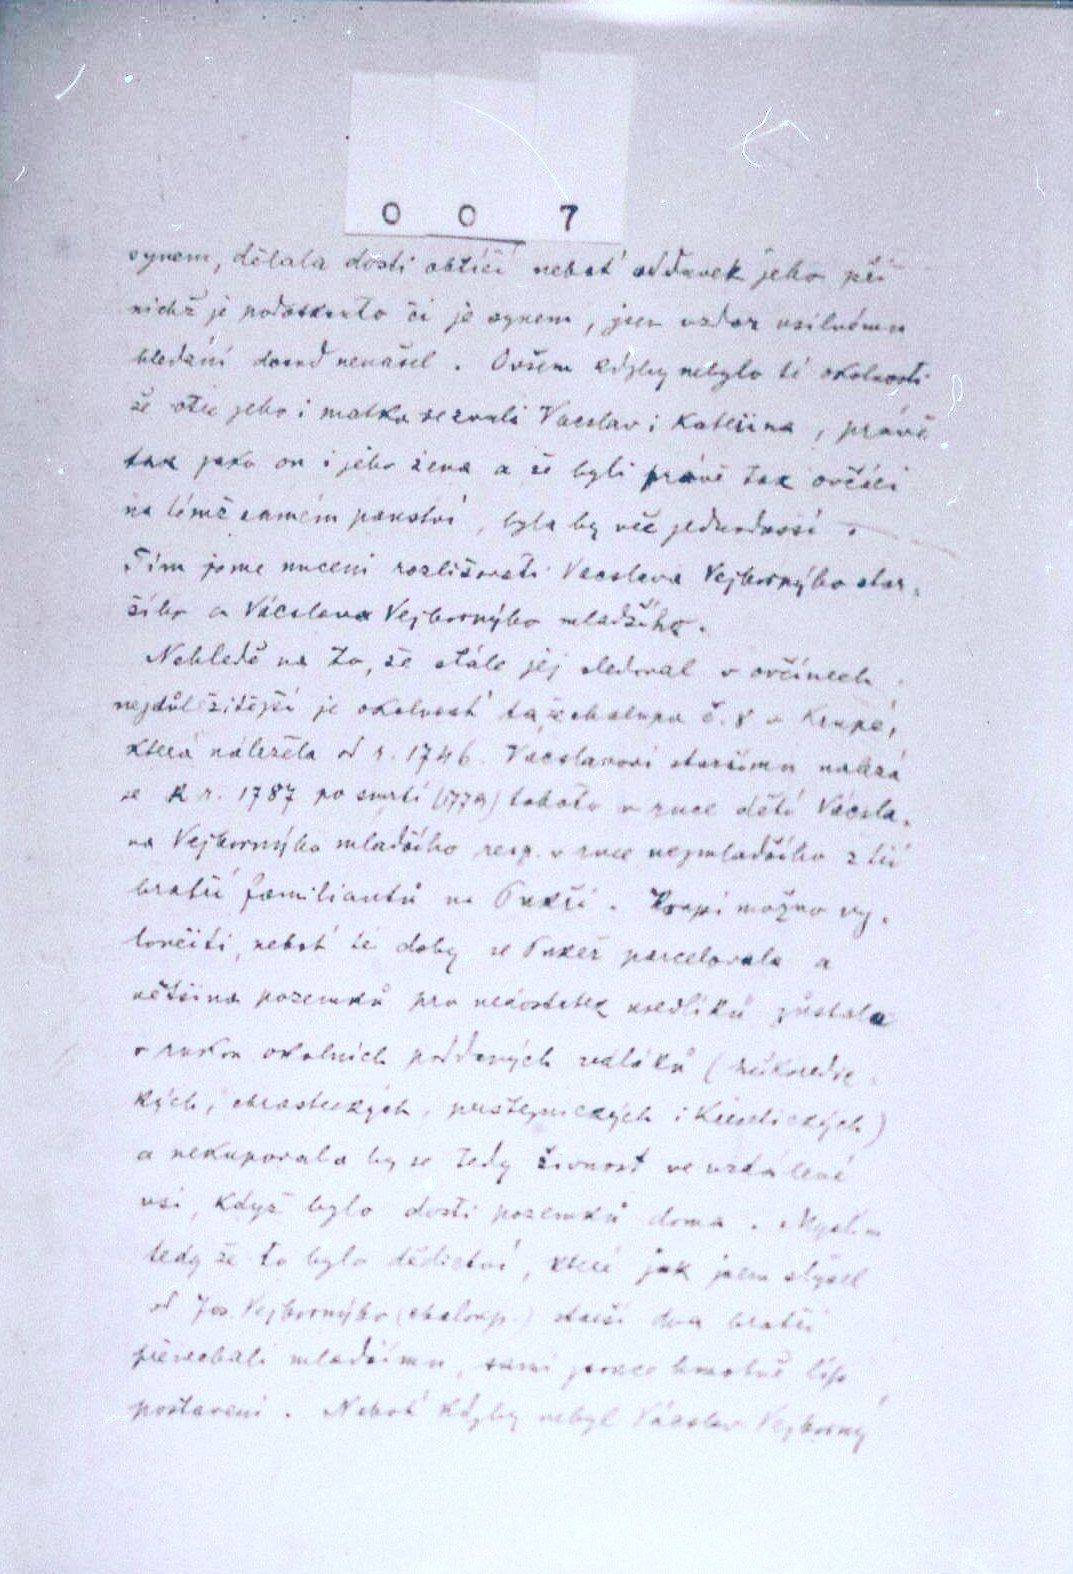 0 0 7
synem, dělala dosti obtíží neboť oddavek jeho při
nichž je podotknuto čí je synem, jsem vzdor usilnému
hledání dosud nenašel. Ovšem kdyby nebylo té okolnosti
že otec jeho i matka se zvali Vácslav i Kateřina, právě
tak jako on i jeho žena a že byli právě tak ovčáci
na témž samém panství, byla by věc jednodušší.
Tím jsme nuceni rozlišovati Vácslava Vejborného star-
šího a Vácslava Vejborného mladšího.
Nehledě na to, že stále jej sledoval v ovčínech
nejdůležitější je okolnosť ta, že chalupa č. 8 v Krupé,
která náležela od r. 1746. Vácslavovi staršímu nalézá
se k r. 1787 po smrti (1779) tohoto v ruce dětí Vácsla-
va Vejborného mladšího resp. v ruce nejmladšího z tří
bratří familiantů na Pukši. Koupi možno vy-
loučiti, neboť té doby se Pukeš parcelovala a
většina pozemků pro nedostatek usedlíků zůstala
v rukou okolních poddaných sedláků
kých, chrasteckých, i
a nekupovala by se tedy živnost ve vzdálené
vsi, když bylo dosti pozemků doma. Myslím
tedy že to bylo dědictví, které jak jsem slyšel
od Jos. Vejborného (chalup.) starší dva bratři
přenechali mladšímu, sami jsouce hmotně lépe
postaveni. Neboť kdyby nebyl Vácslav Vejborný